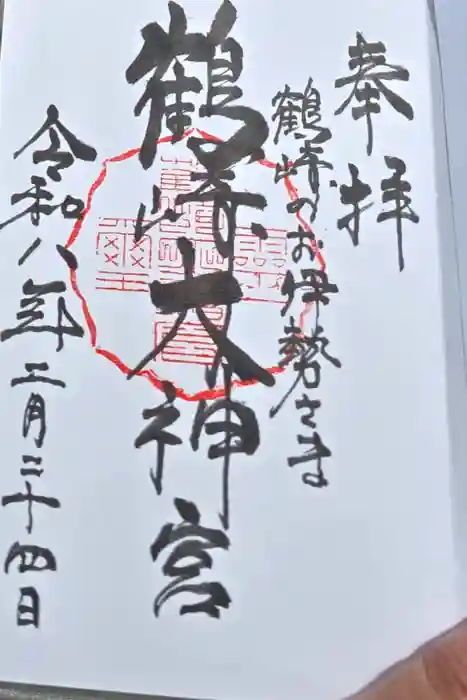 奉拝
鶴崎のお伊勢さま
鶴崎大神宮
令和八年二月二十四日